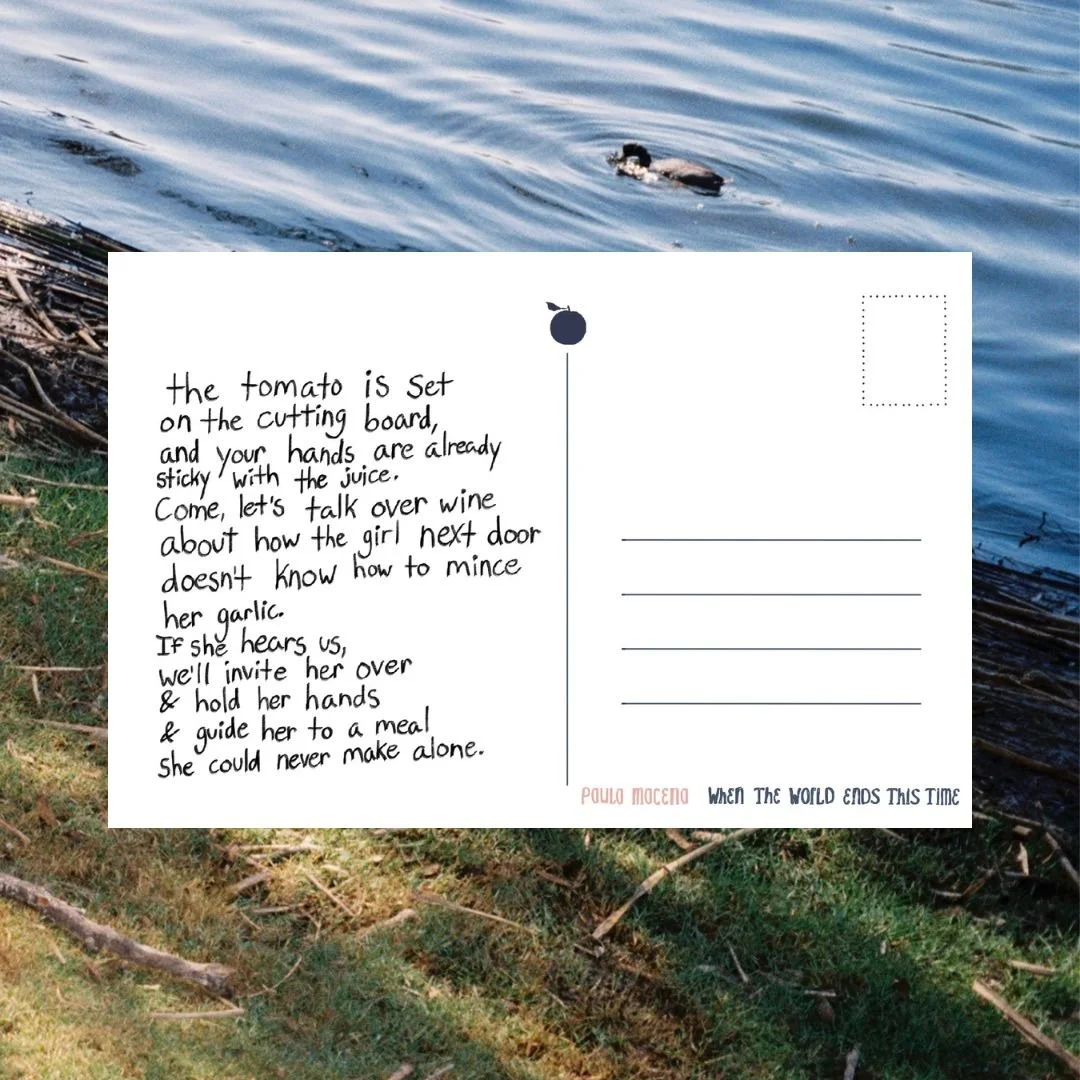 the tomato is set
on the cutting board,
and your hands are already
sticky with the juice.
Come, let's talk over wine
about how the girl next door
doesn't know how to mince
her garlic.
If she hears us,
we'll invite her over
& hold her hands
& guide her to a meal
She could never make alone.
Paula Macena WHEN THE WORLD ENDS THIS TIME